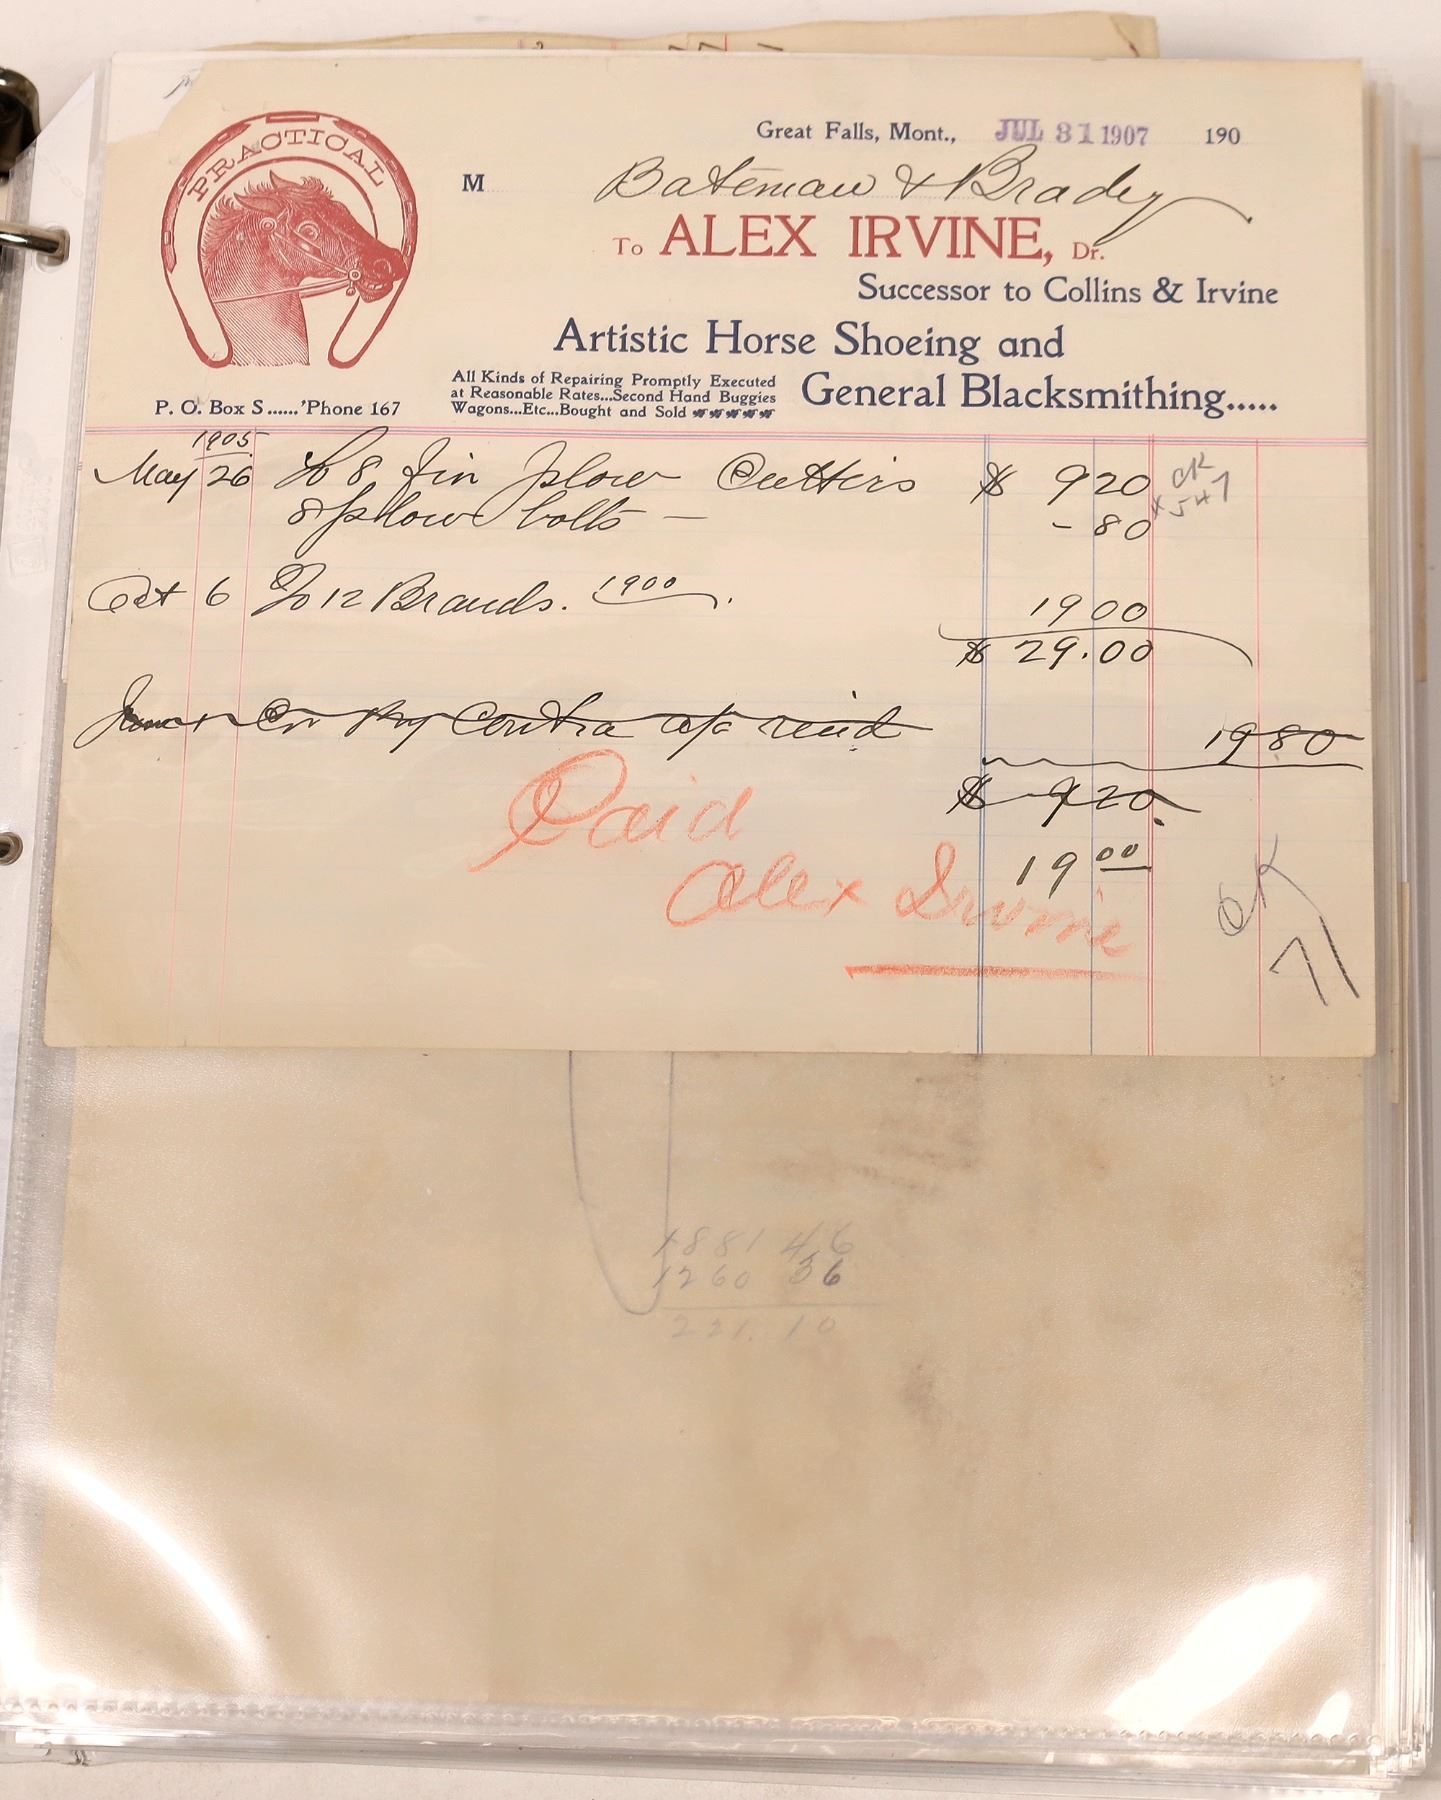 PRACTICAL
Great Falls, Mont., JUL 31 1907 190
M Bateman & Brady
To ALEX IRVINE, Dr.
Successor to Collins & Irvine
Artistic Horse Shoeing and
All Kinds of Repairing Promptly Executed
at Reasonable Rates...Second Hand Buggies
Wagons...Etc...Bought and Sold
General Blacksmithing.....
P. O. Box S......'Phone 167
1905
May 26 To 8 Jin Plow Cutters $ 920
8 plow bolts — - 80
OK
# 547
Oct 6 To 12 Brands. 1900. 1900
$ 29.00
June 1 Cr By Contra a/c rend 1980
$ 920.
19 00
Paid
Alex Irvine
OK
71
1881 46
1260 36
221.10